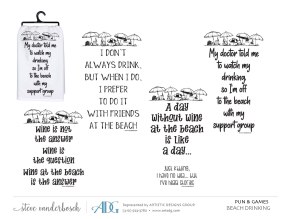 My doctor told me
to watch my
drinking,
so I'm off
to the beach
with my
support group
I DON'T
ALWAYS DRINK,
BUT WHEN I DO,
I PREFER
TO DO IT
WITH FRIENDS
AT THE BEACH
My doctor told me
to watch my
drinking,
so I'm off
to the beach
with my
support group
A day
without wine
at the beach
is like
a day...
Just kidding,
I have no idea...
Wine is not
the answer
Wine is
the question
Wine at the beach
is the answer
steve vanderbosch
ADG
Represented by ARTISTIC DESIGNS GROUP
PUN & GAMES
BEACH DRINKING